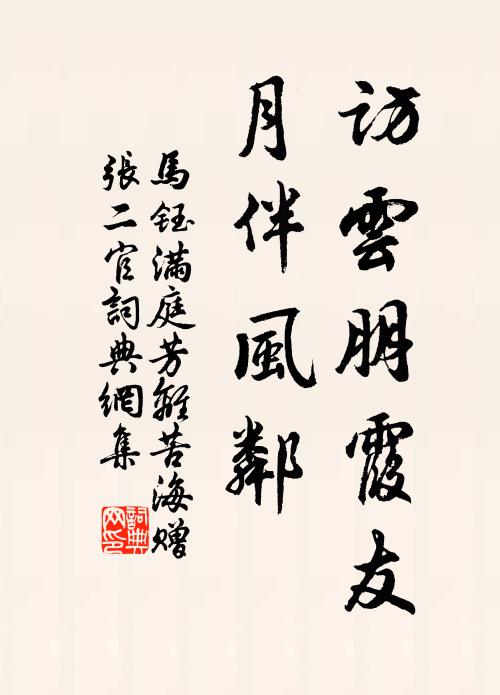 訪雲朋霞友
月伴風鄰
馬鈺滿庭芳離苦海贈
張二官詞典網集
詞典
网印